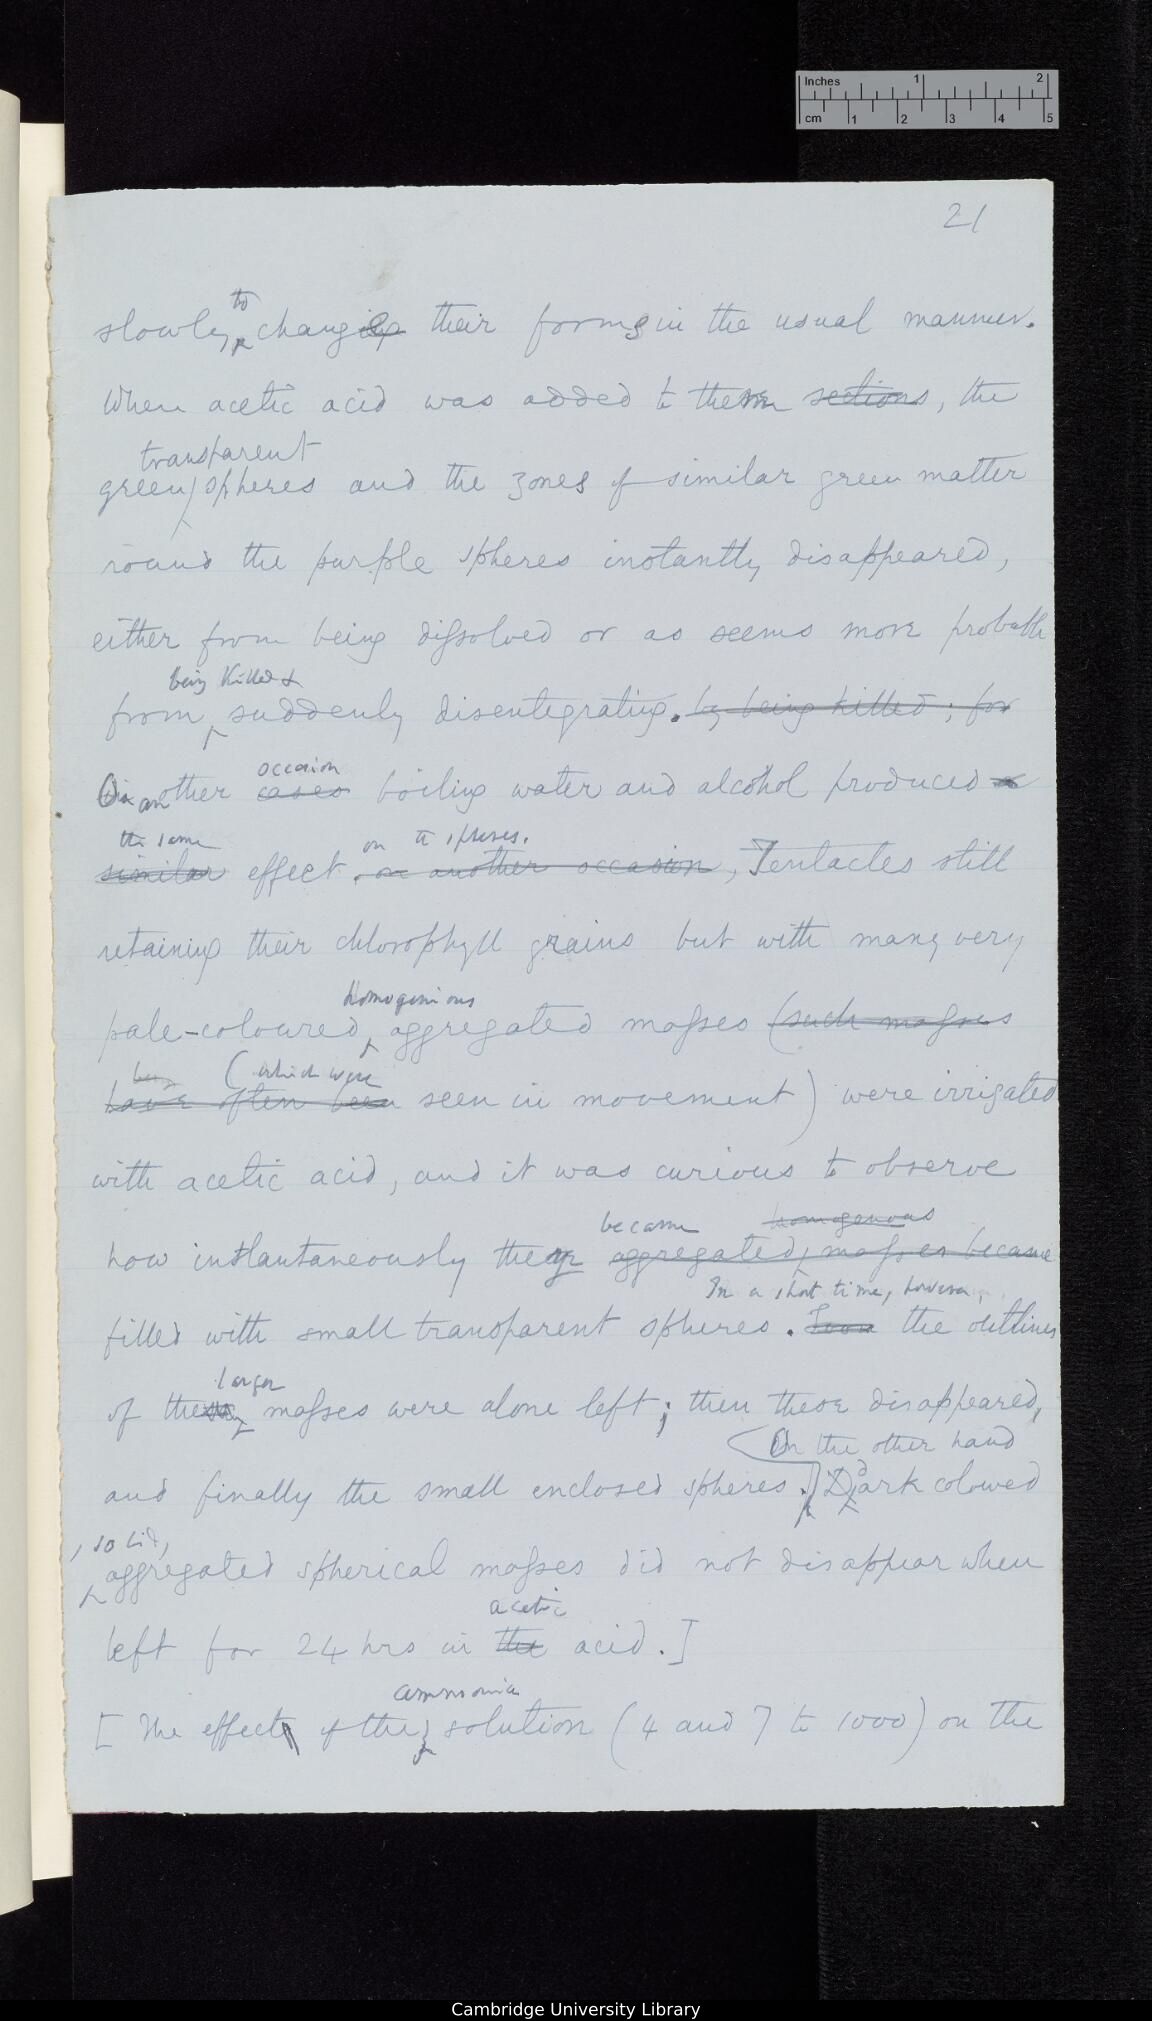 Inches 1 2
cm 1 2 3 4 5
21
to
slowly, changing their forms in the usual manner.
When acetic acid was added to them sections, the
transparent
green spheres and the zones of similar green matter
round the purple spheres instantly disappeared,
either from being dissolved or as seems more probable
being killed &
from suddenly disentegrating. by being killed; for
occasion
On another cases boiling water and alcohol produced a
the same on the spheres.
similar effect. on another occasion, Tentacles still
retaining their chlorophyll grains but with many very
homogenious
pale-coloured, aggregated masses (such masses
(which were
have often been seen in movement) were irrigated
with acetic acid, and it was curious to observe
became homogenous
how instantaneously they aggregated, masses became
In a short time, however,
filled with small transparent spheres. Soon the outlines
larger
of the masses were alone left; then these disappeared,
On the other hand
and finally the small enclosed spheres. Dark coloured
, solid,
aggregated spherical masses did not disappear when
acetic
left for 24 hrs in the acid.]
ammonia
[The effects of the solution (4 and 7 to 1000) on the
Cambridge University Library